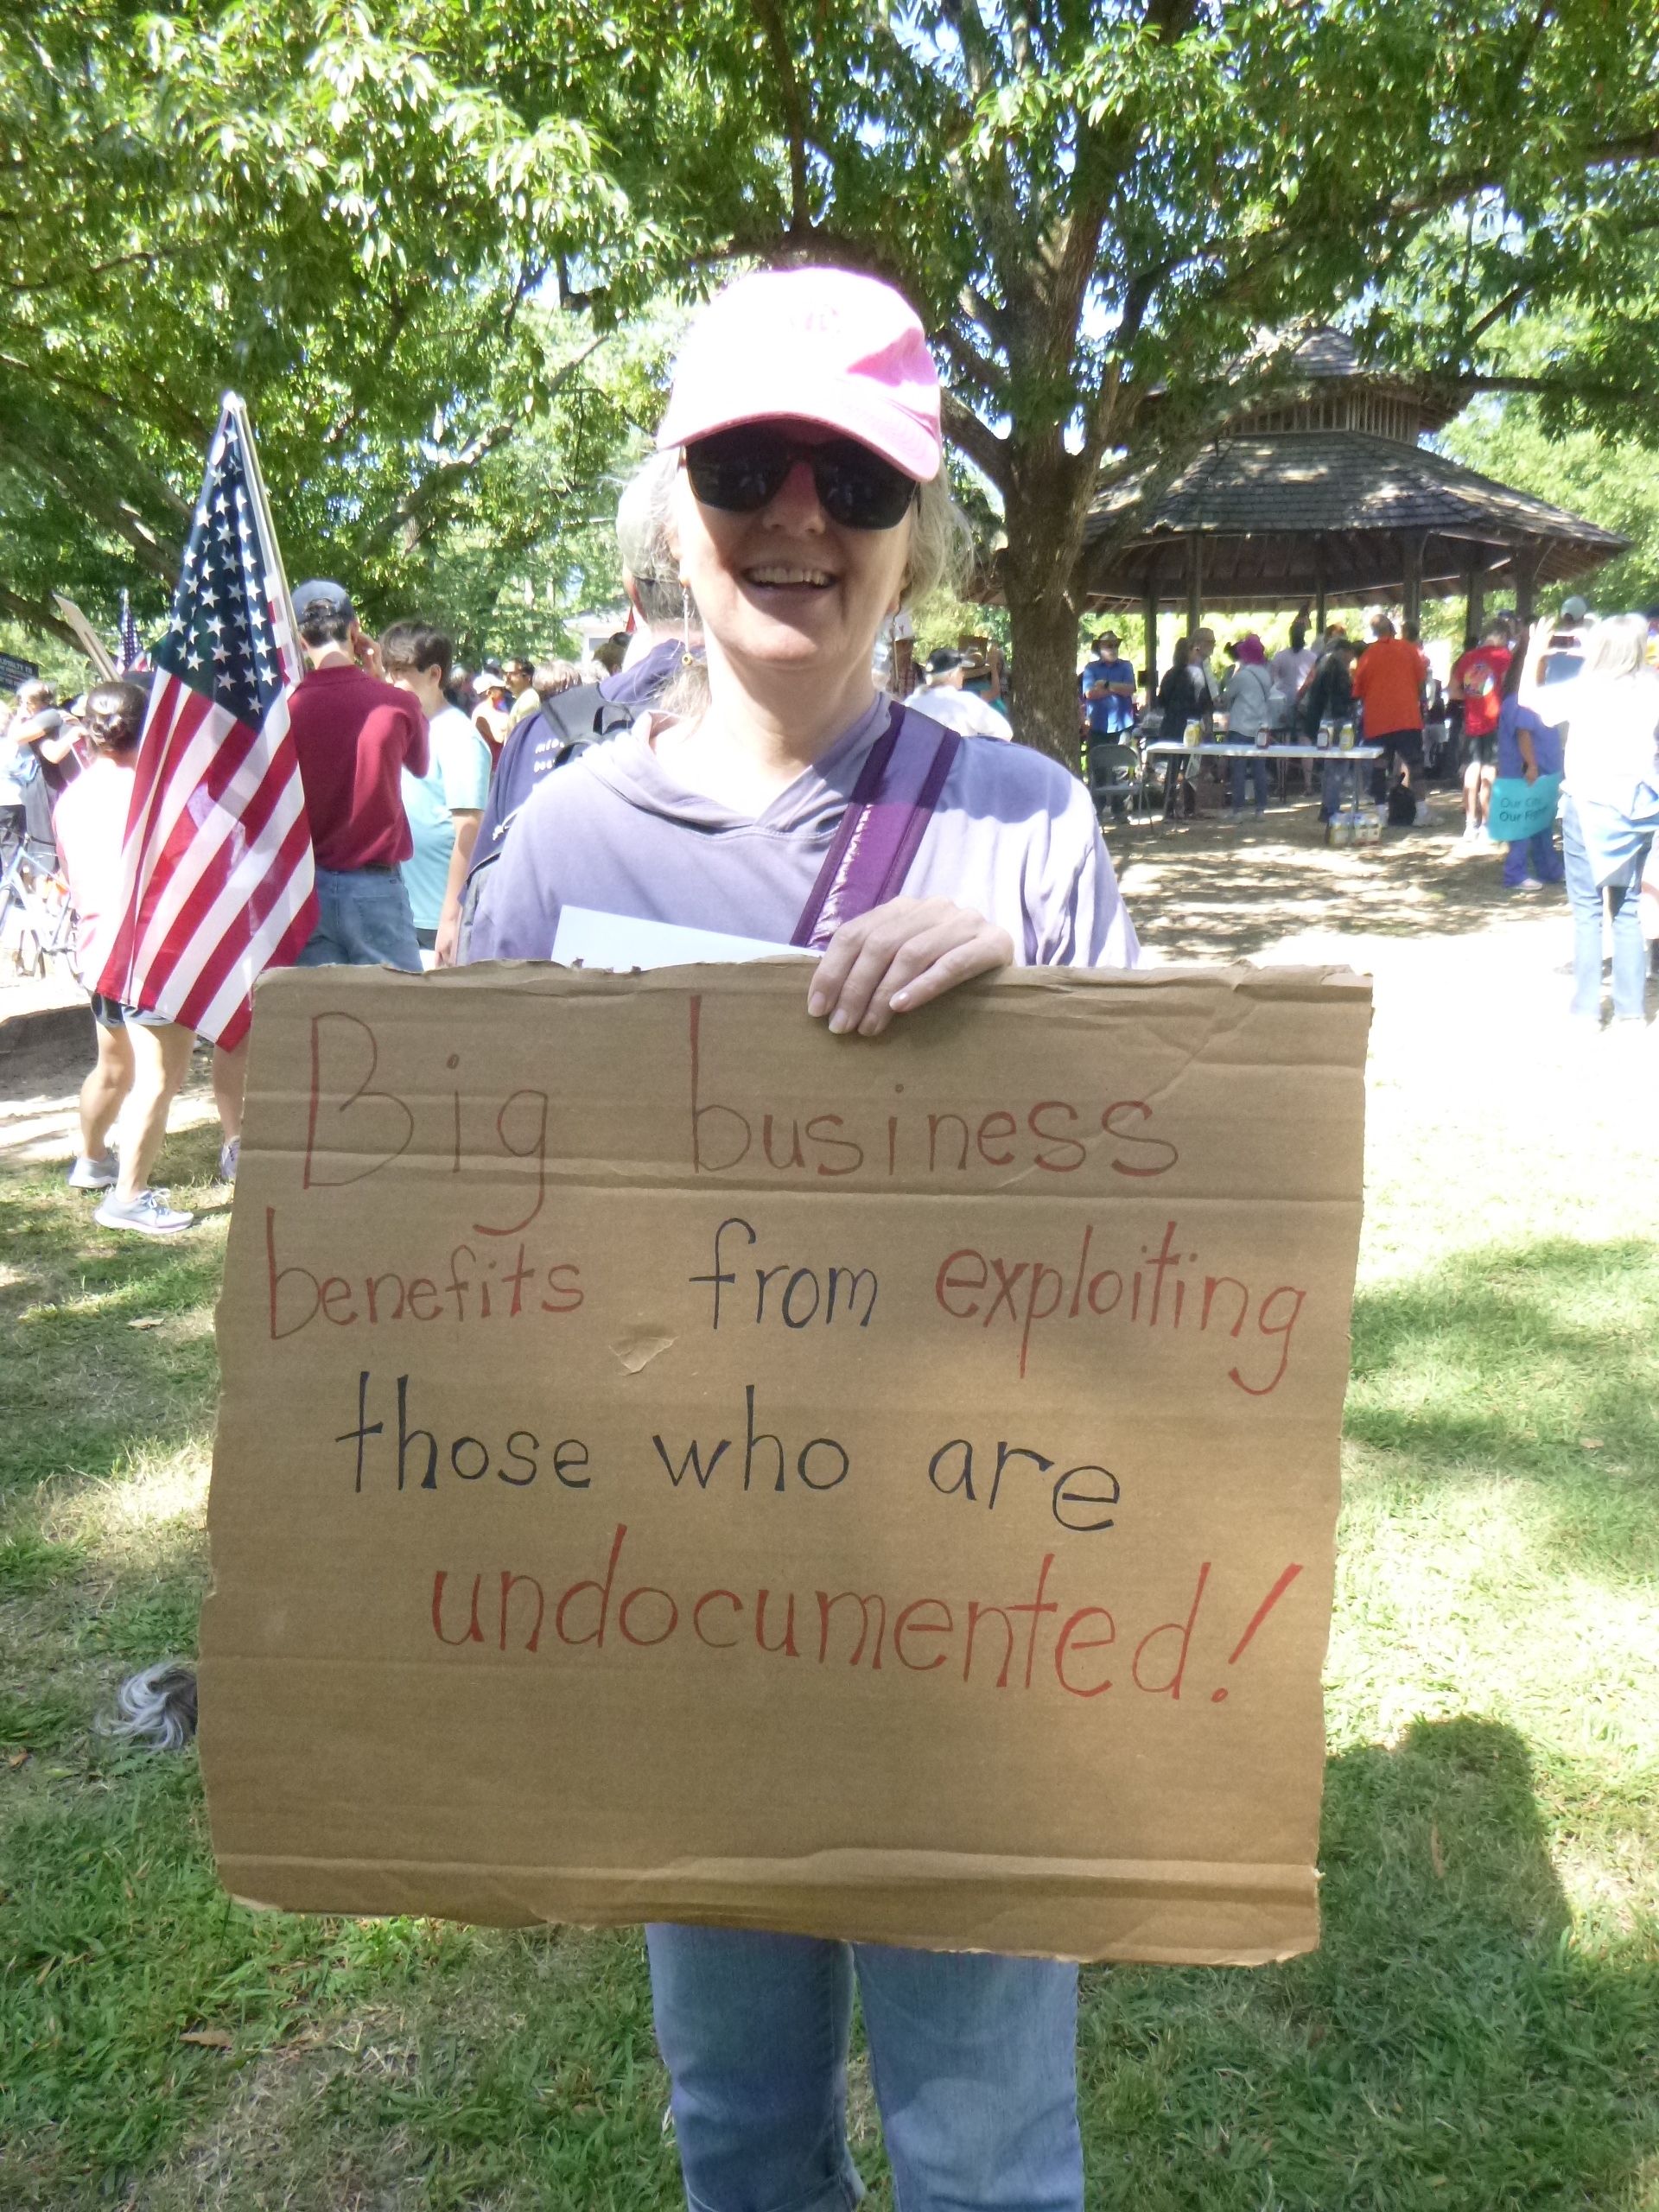 Big business
benefits from exploiting
those who are
undocumented!
Our
Our